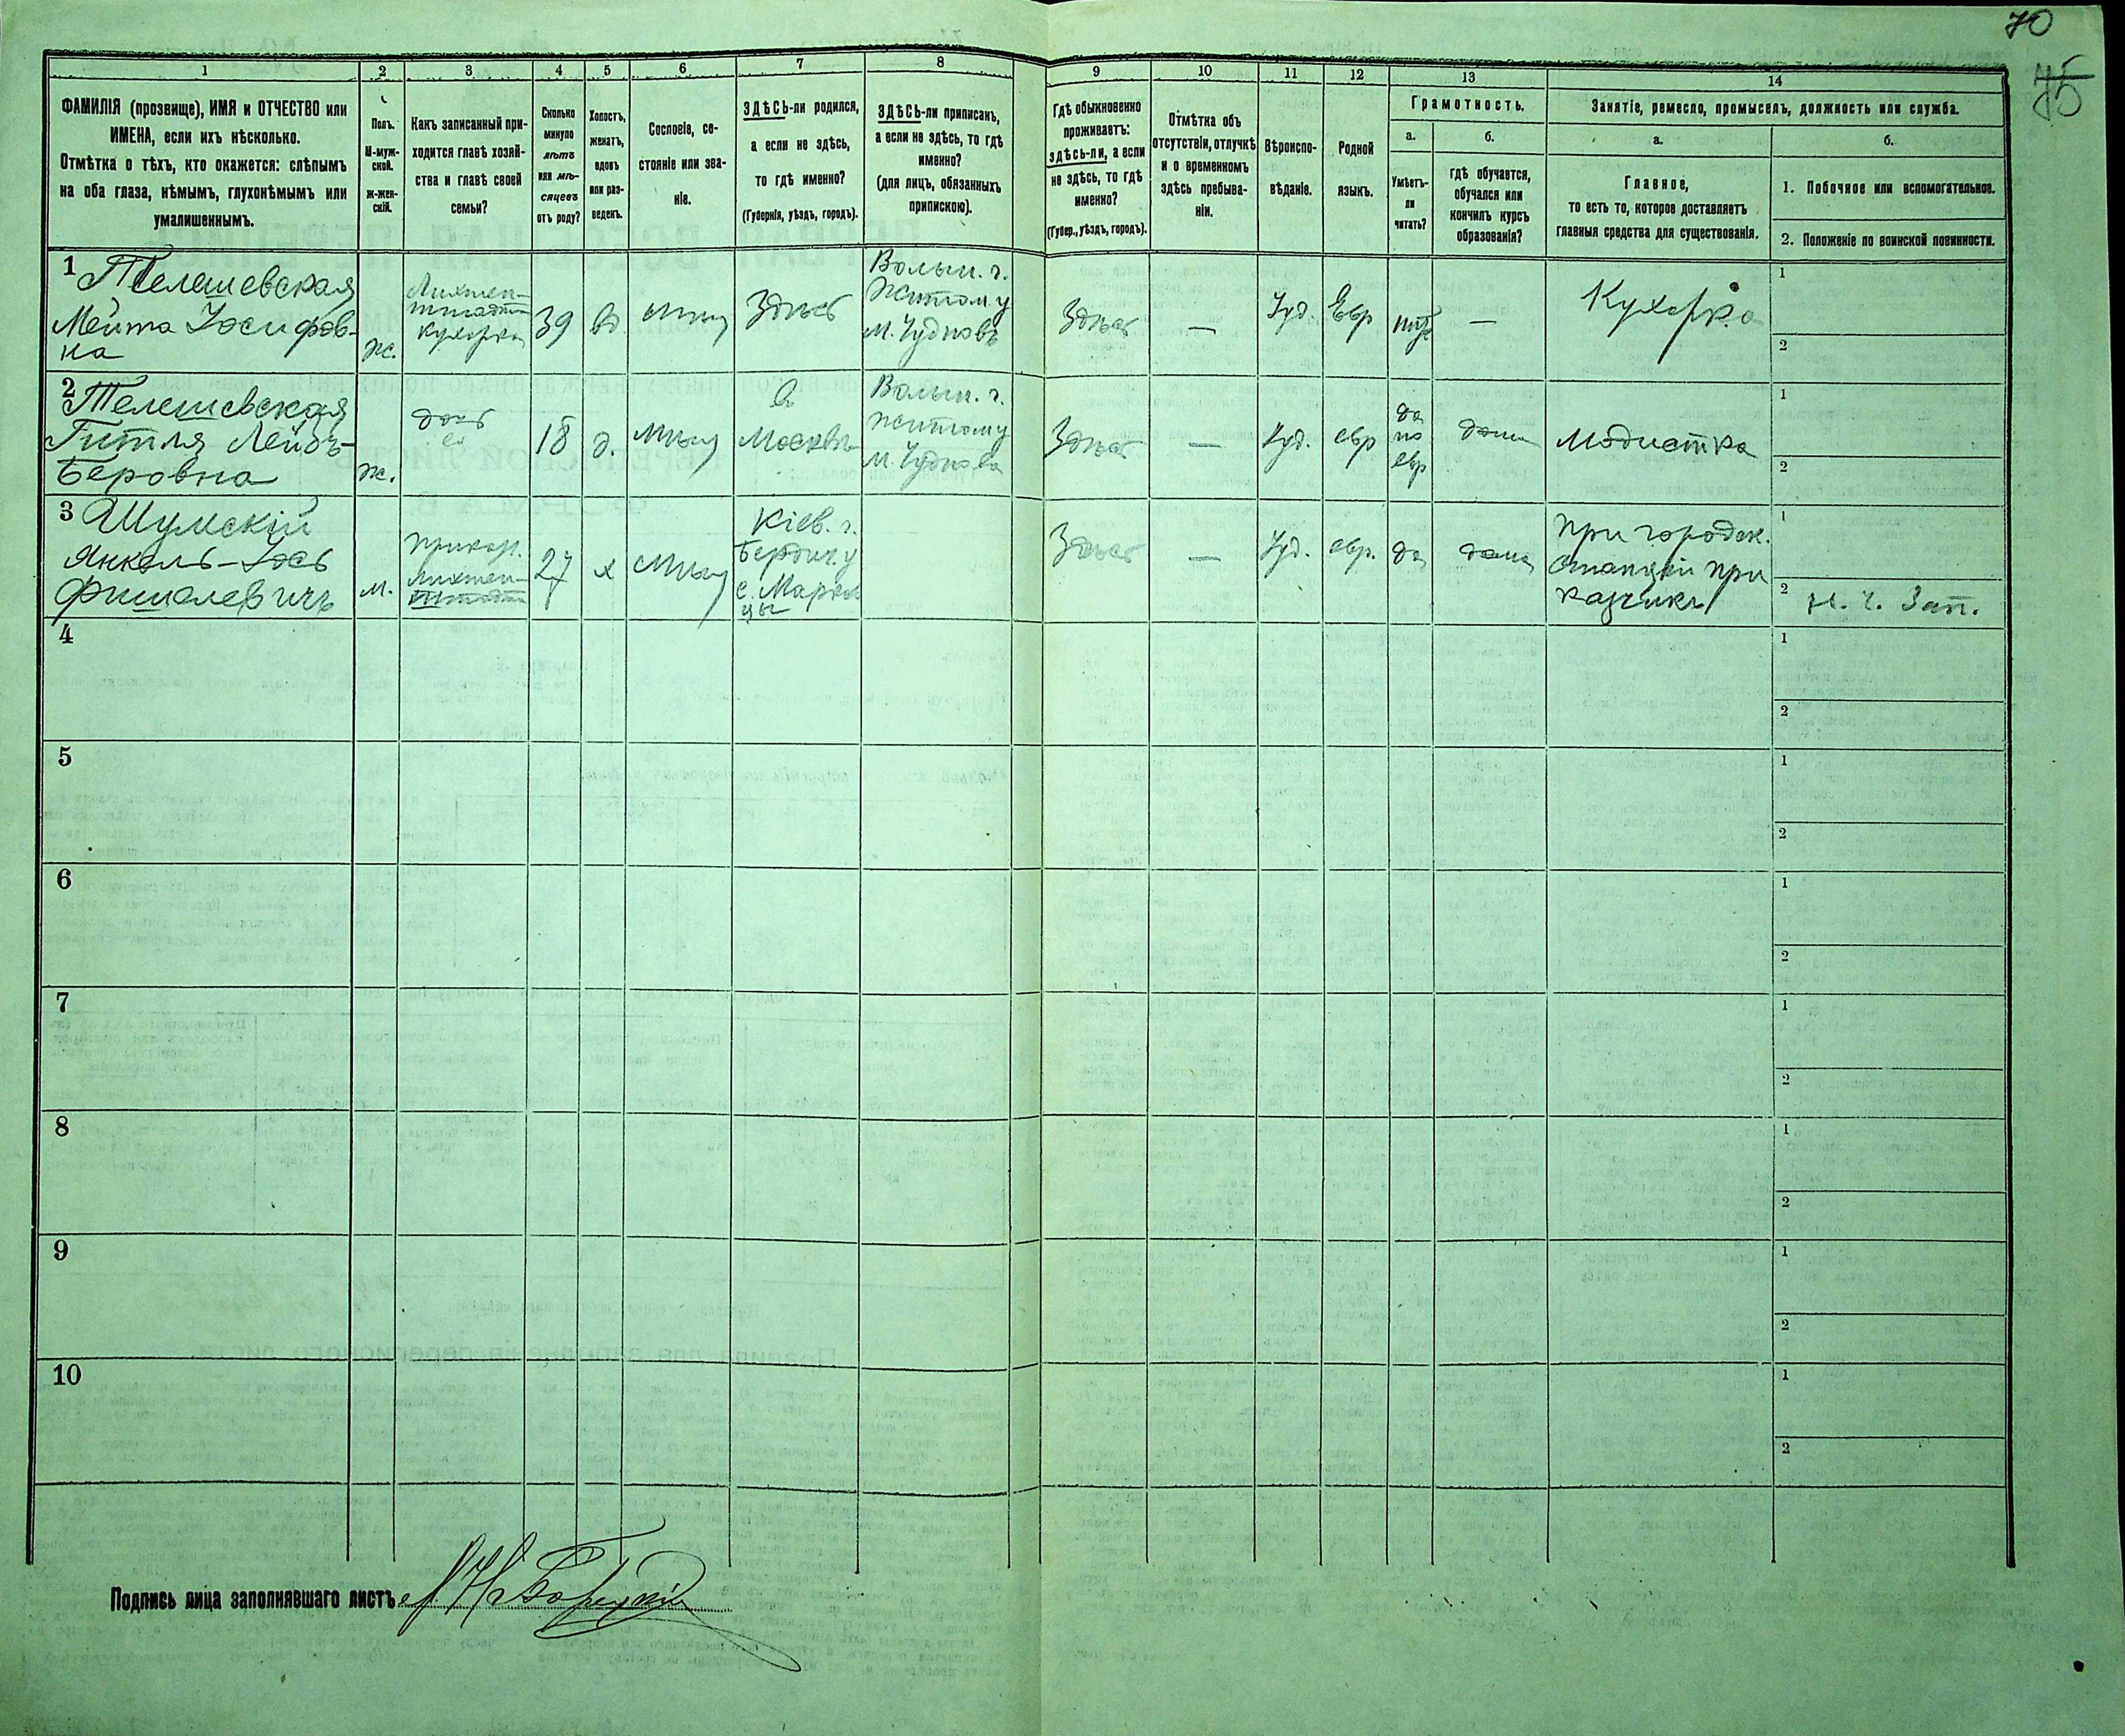 70
75
1 2 3 4 5 6 7 8 9 10 11 12 13 14
ФАМИЛІЯ (прозвище), ИМЯ и ОТЧЕСТВО или
ИМЕНА, если ихъ нѣсколько.
Отмѣтка о тѣхъ, кто окажется: слѣпымъ
на оба глаза, нѣмымъ, глухонѣмымъ или
умалишеннымъ.
Полъ.
М-муж-
ской.
ж-жен-
скій.
Какъ записанный при-
ходится главѣ хозяй-
ства и главѣ своей
семьи?
Сколько
минуло
лѣтъ
или мѣ-
сяцевъ
отъ роду?
Холостъ,
женатъ,
вдовъ
или раз-
веденъ.
Сословіе, со-
стояніе или зва-
ніе.
ЗДѢСЬ-ли родился,
а если не здѣсь,
то гдѣ именно?
(Губернія, уѣздъ, городъ).
ЗДѢСЬ-ли приписанъ,
а если не здѣсь, то гдѣ
именно?
(для лицъ, обязанныхъ
припискою).
Гдѣ обыкновенно
проживаетъ:
здѣсь-ли, а если
не здѣсь, то гдѣ
именно?
(Губер., уѣздъ, городъ).
Отмѣтка объ
отсутствіи, отлучкѣ
и о временномъ
здѣсь пребыва-
ніи.
Вѣроиспо-
вѣданіе.
Родной
языкъ.
Грамотность.
а.
Умѣетъ-
ли
читать?
б.
гдѣ обучается,
обучался или
кончилъ курсъ
образованія?
Занятіе, ремесло, промыселъ, должность или служба.
а.
Главное,
то есть то, которое доставляетъ
главныя средства для существованія.
б.
1. Побочное или вспомогательное.
2. Положеніе по воинской повинности.
1 Телешевская
Мейта Іосифов-
на
ж.
кухарка
39
вд
Здѣсь
Волын. г.
Житом. у
м. Чудновъ
Здѣсь
—
Іуд.
Евр
—
Кухарка
1
2
2 Телешевская
Гитля Лейбъ-
Беровна
ж.
дочь
ея
18
д.
Москвѣ
Волын. г.
Житом у
м. Чуднова
Здѣсь
—
Іуд.
евр
да
по
евр
дома
Модистка
1
2
3 Шумскій
Янкель-Іось
Фишелевичъ
м.
27
х
Кіев. г.
Бердич. у
Здѣсь
—
Іуд.
евр.
да
дома
при городск.
станціи при
казчикъ
1
2 Н. ч. Зап.
4
1
2
5
1
2
6
1
2
7
1
2
8
1
2
9
1
2
10
1
2
Подпись лица заполнявшаго листъ